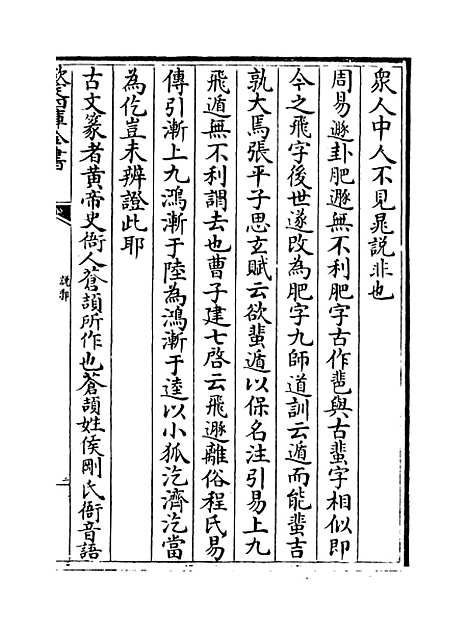 衆人中人不見晁説非也
周易遯卦肥遯無不利肥字古作𦐝與古蜚字相似即
今之飛字後世遂改為肥字九師道訓云遁而能蜚吉
孰大焉張平子思玄賦云欲蜚遁以保名注引易上九
飛遁無不利謂去也曹子建七啓云飛遯離俗程氏易
傳引漸上九鴻漸于陸為鴻漸于逵以小狐汔濟汔當
為仡豈未辨證此耶
古文篆者黄帝史衙人蒼頡所作也蒼頡姓侯剛氏衙音語
欽定四庫全書
説郛